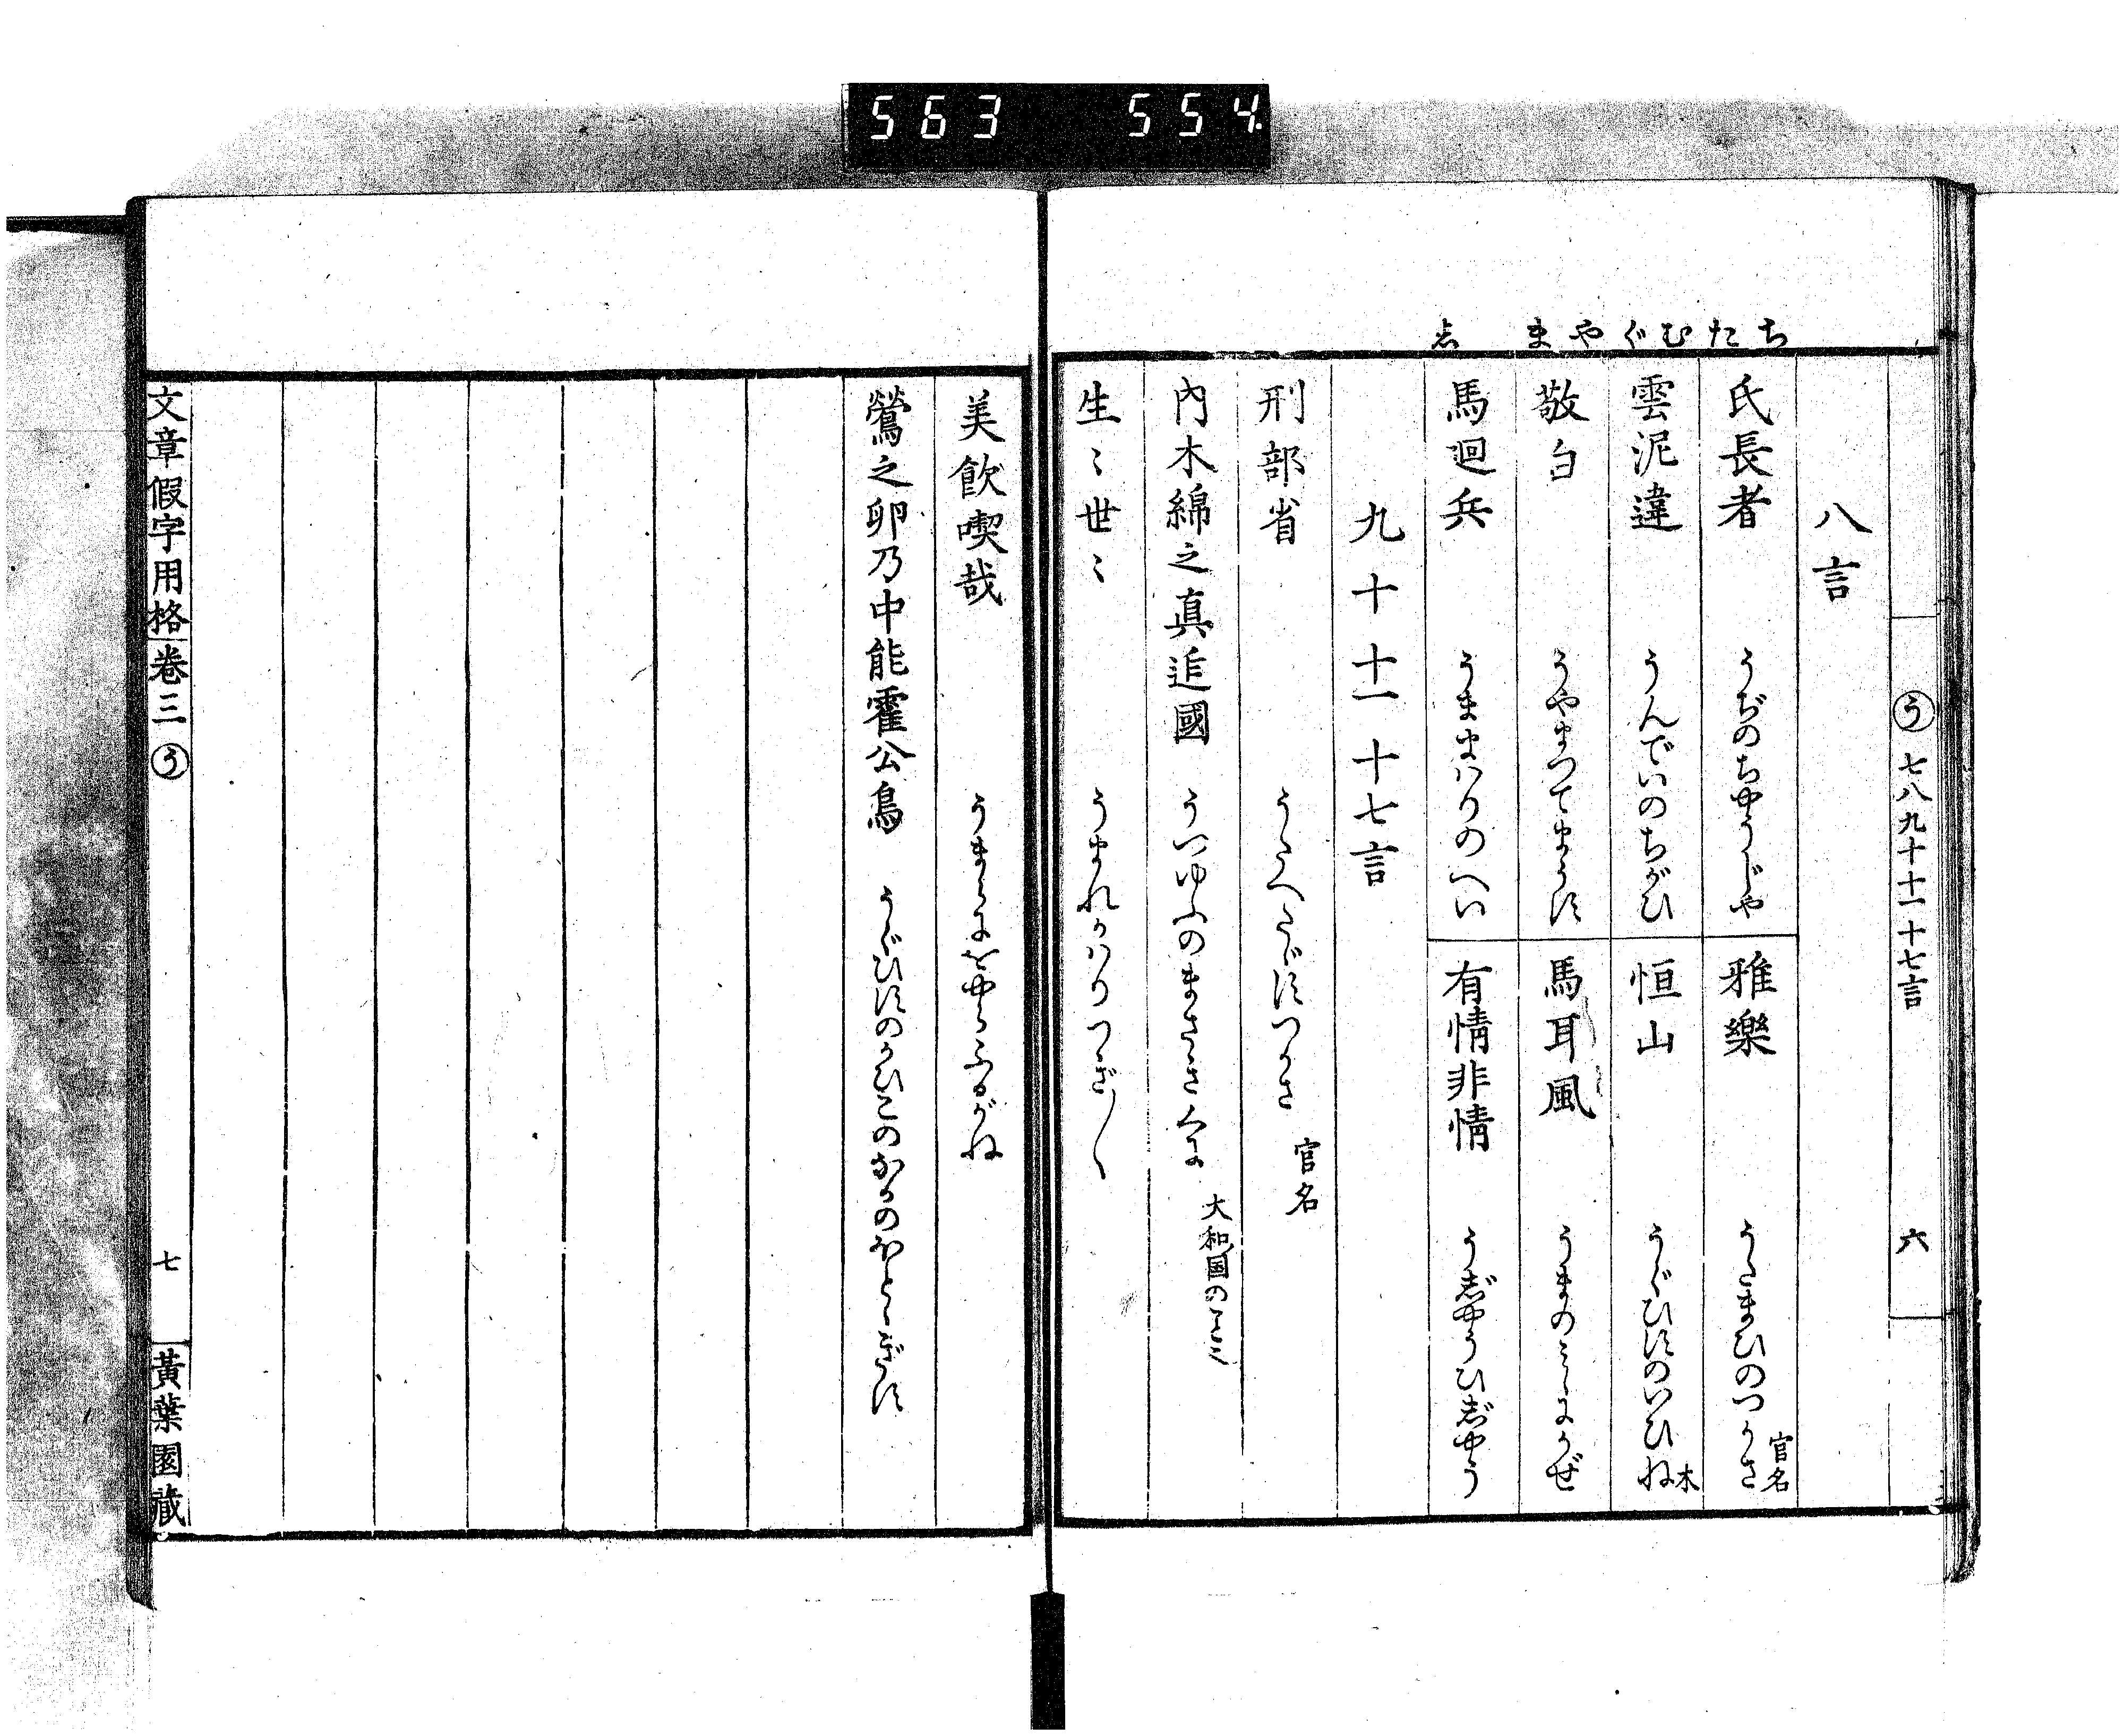 563 554.
ちたむぐやま し
う 七八九十十一十七言 六
八言
氏長者 うぢのちやうじや
雅樂 うたまひのつかさ 官名
雲泥違 うんでいのちがひ
恒山 うぐひすのいひね 木
敬白 うやまつてまうす
馬耳風 うまのみゝにかぜ
馬迴兵 うままハりのへい
有情非情 うじやうひじやう
九十十一十七言
刑部省 うたへたゞすつかさ 官名
内木綿之真迮國 うつゆふのまさきくに 大和国のことミ
生〻世〻 うまれかハりつぎ〱
美飲喫哉 うまらにをやらふるがね
鶯之卵乃中能霍公鳥 うぐひすのかひこのなかのほとゝぎす
文章假字用格 卷三 う 七 黃葉園藏